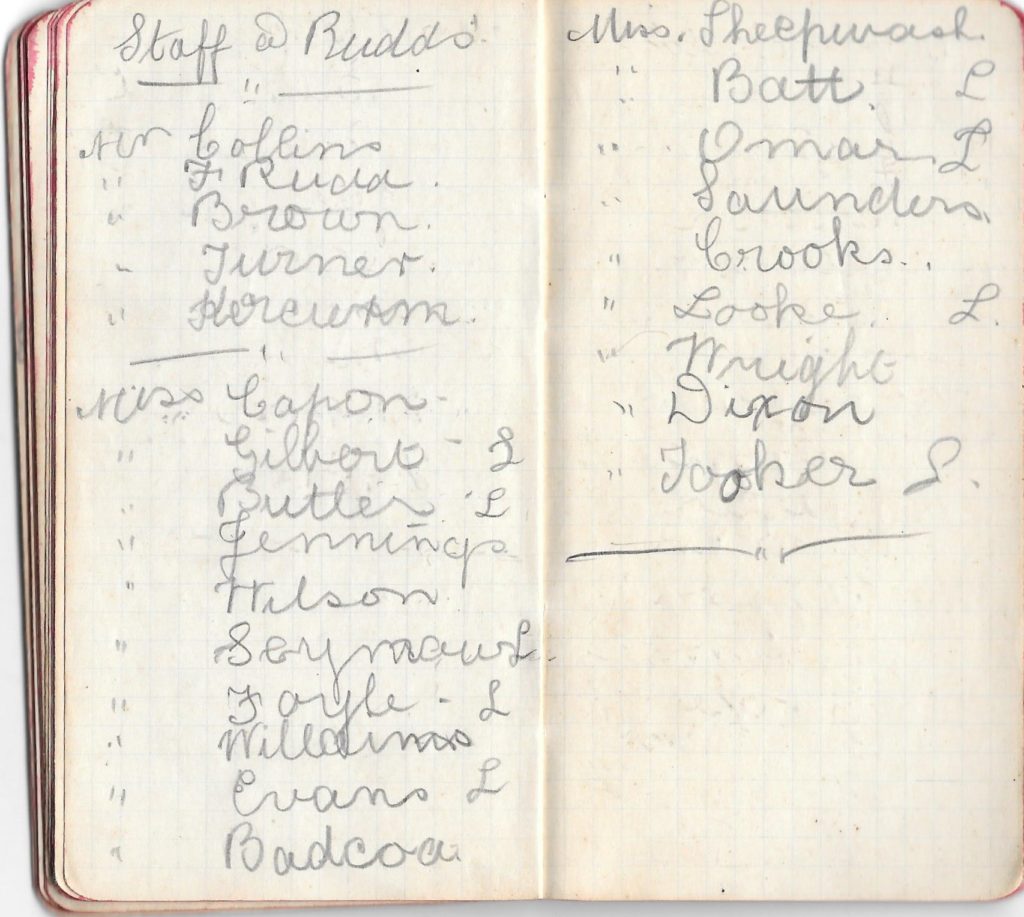 Staff @ Rudds'
"
Mr Collins
" F Rudd.
" Brown.
" Turner.
"
"
Miss Capon -
" Gilbert - L
" Butler - L
" Jennings
" Wilson
" Seymour L.
" Foyle - L
" Willaims
" Evans L
" Badcoa.
Miss. Sheepwash.
" Batt. L
" Omar L
" Saunders.
" Crooks..
" Looke. L.
" Wright
" Dixon
" Tooker L.
"